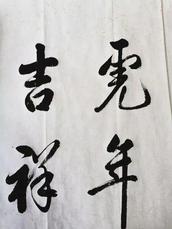 虎年
吉祥